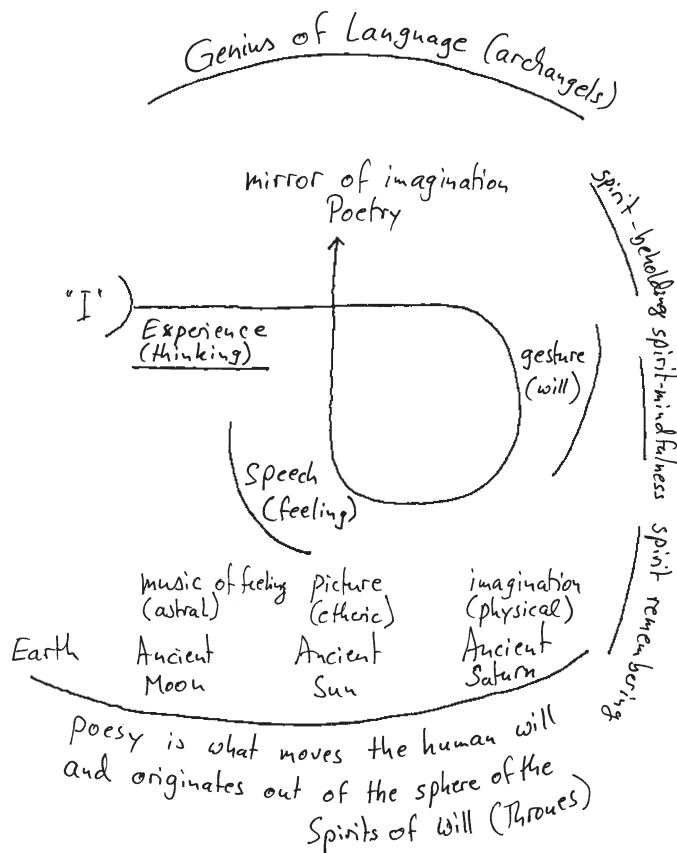 Genius of Language (archangels)
mirror of imagination
Poetry
"I"
Experience
(thinking)
gesture
(will)
speech
(feeling)
spirit-beholding
spirit-mindfulness
spirit remembering
music of feeling
(astral)
picture
(etheric)
imagination
(physical)
Earth
Ancient
Moon
Ancient
Sun
Ancient
Saturn
Poesy is what moves the human will
and originates out of the sphere of the
Spirits of Will (Thrones)